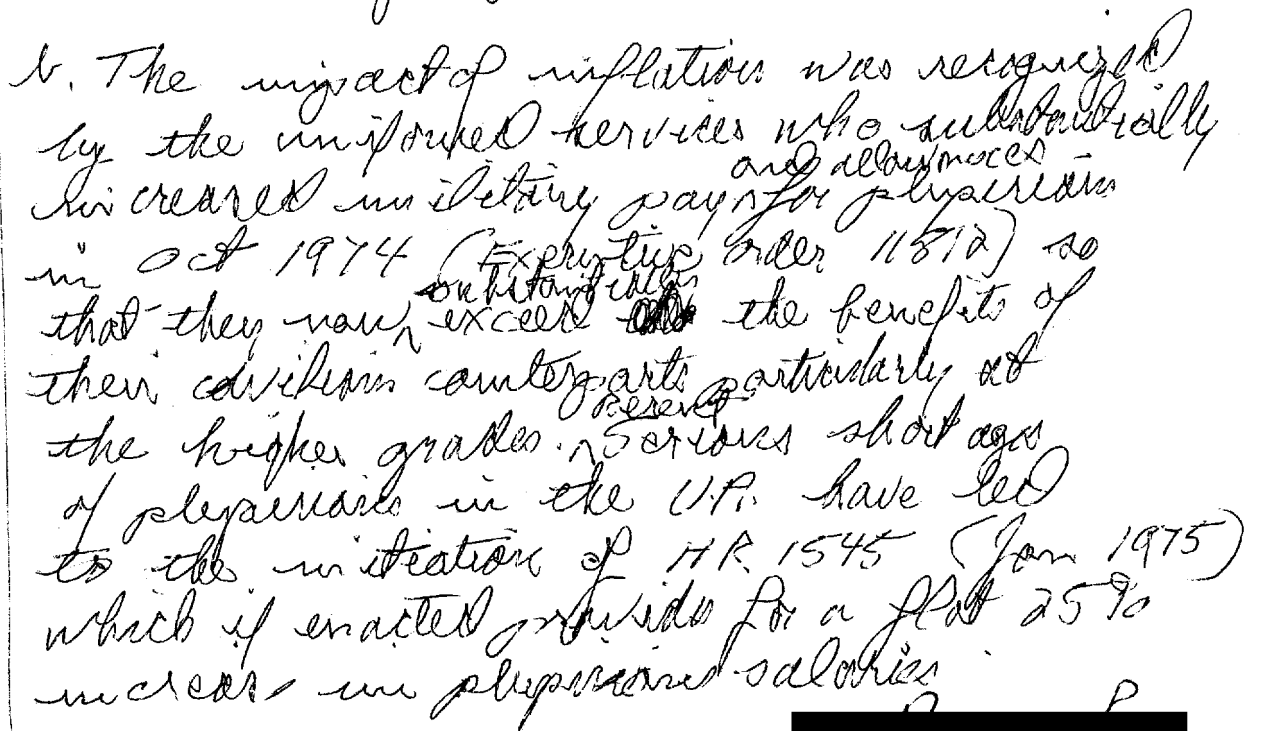 b. The impact of inflation was recognized
by the uniformed services who substantially
increased military pay and allowances for physicians
in Oct 1974 (Executive order 11812) so
that they now substantially exceed the benefits of
their civilian counterparts particularly at
the higher grades. Serious shortages
of physicians in the V.A. have led
to the initiation of HR. 1545 (Jan 1975)
which if enacted provides for a flat 25%
increase in physicians salaries.